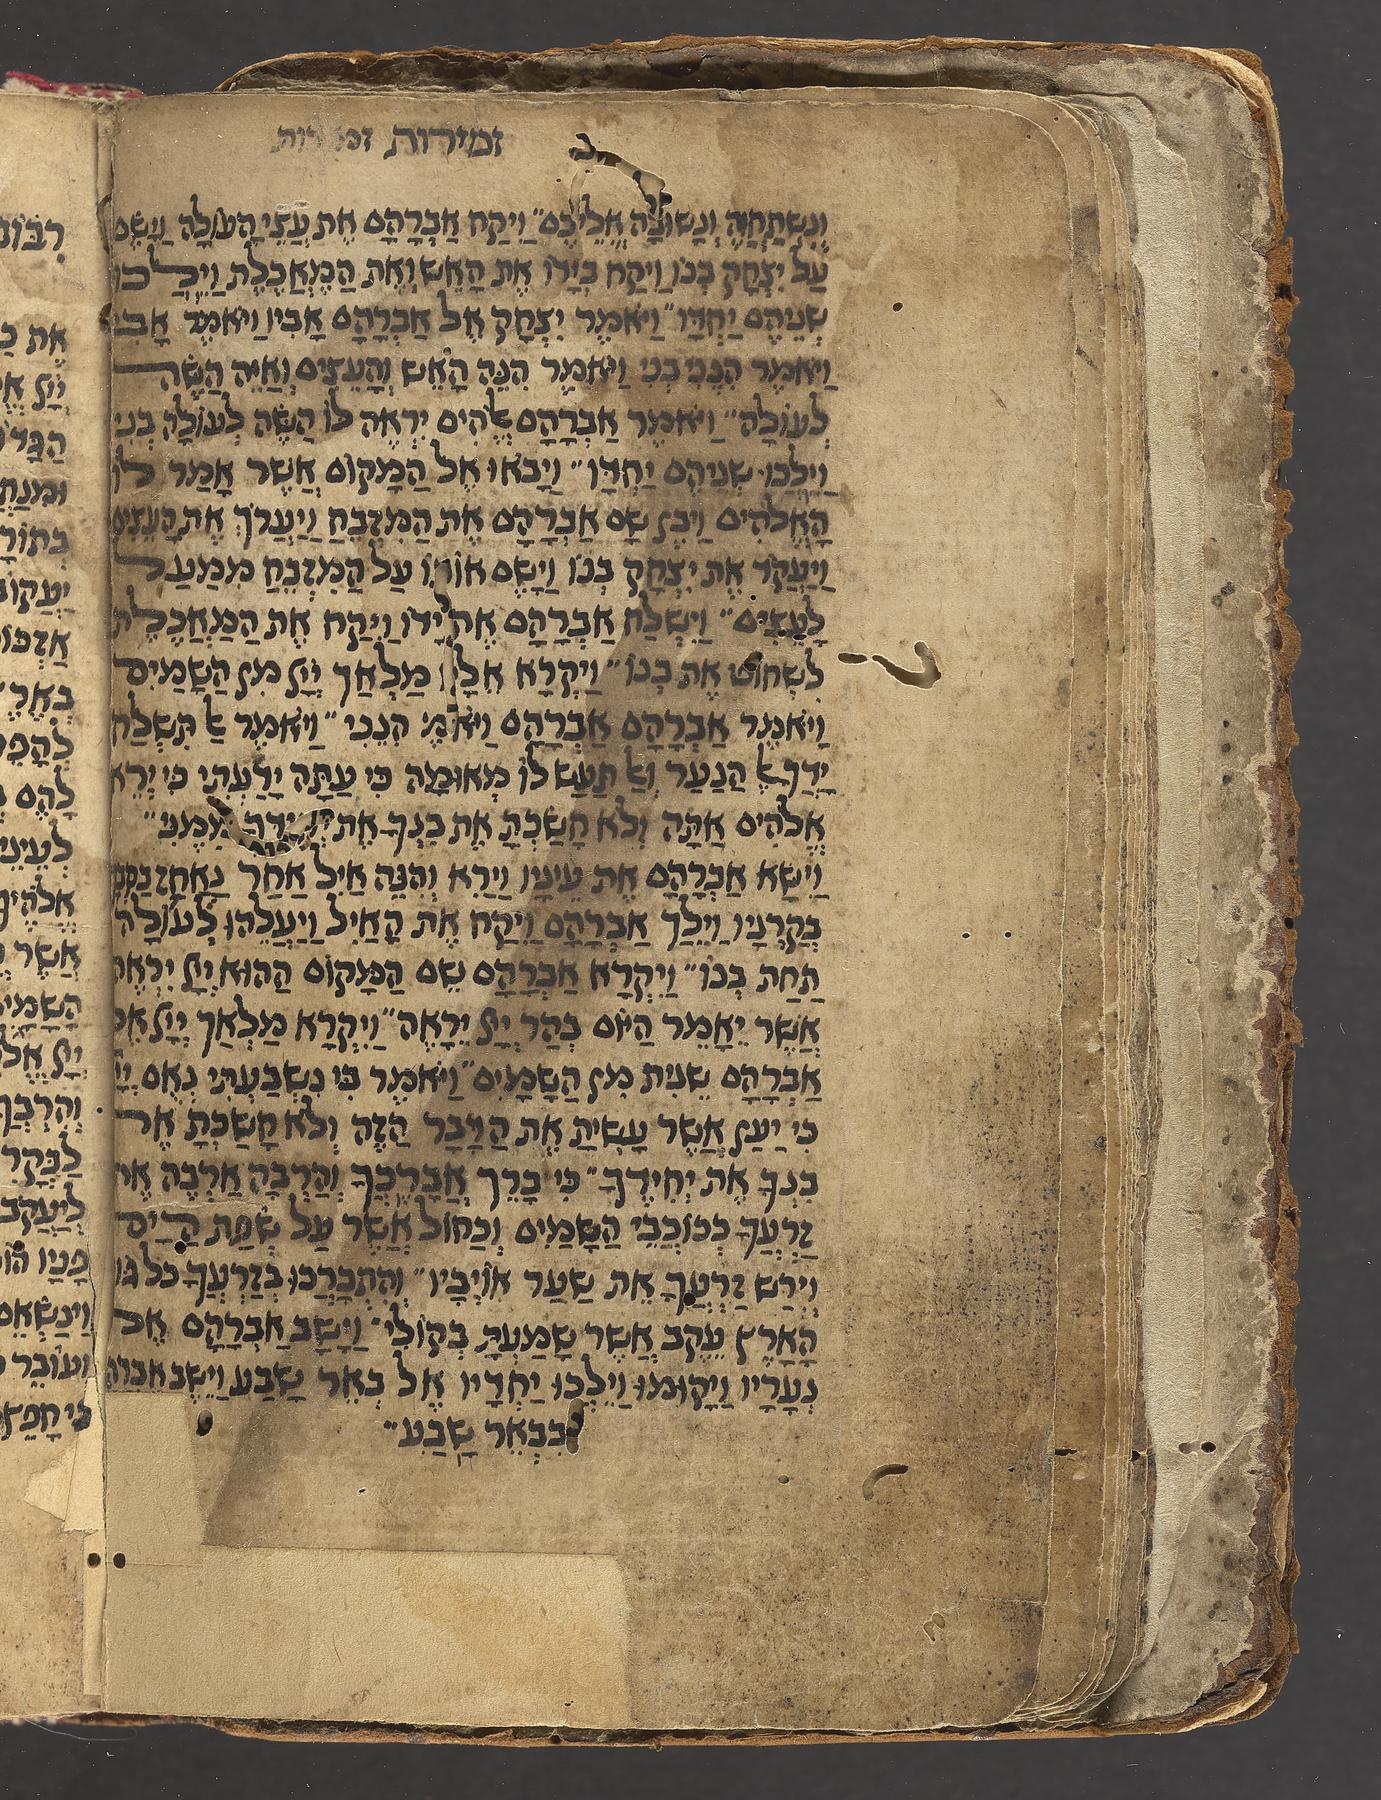 זמירות זמירות
וְנִשְׁתַּחֲוֶה וְנָשׁוּבָה אֲלֵיכֶם״ וַיִּקַּח אַבְרָהָם אֶת עֲצֵי הָעוֹלָה וַיָּשֶׂם
עַל יִצְחָק בְּנוֹ וַיִּקַּח בְּיָדוֹ אֶת הָאֵשׁ וְאֶת הַמַּאֲכֶלֶת וַיֵּלְכוּ
שְׁנֵיהֶם יַחְדָּו״ וַיֹּאמֶר יִצְחָק אֶל אַבְרָהָם אָבִיו וַיֹּאמֶר אָבִי
וַיֹּאמֶר הִנֶּנִּי בְנִי וַיֹּאמֶר הִנֵּה הָאֵשׁ וְהָעֵצִים וְאַיֵּה הַשֶּׂה
לְעוֹלָה״ וַיֹּאמֶר אַבְרָהָם אֱלֹהִים יִרְאֶה לוֹ הַשֶּׂה לְעוֹלָה בְּנִי
וַיֵּלְכוּ שְׁנֵיהֶם יַחְדָּו״ וַיָּבֹאוּ אֶל הַמָּקוֹם אֲשֶׁר אָמַר לוֹ
הָאֱלֹהִים וַיִּבֶן שָׁם אַבְרָהָם אֶת הַמִּזְבֵּחַ וַיַּעֲרֹךְ אֶת הָעֵצִים
וַיַּעֲקֹד אֶת יִצְחָק בְּנוֹ וַיָּשֶׂם אוֹתוֹ עַל הַמִּזְבֵּחַ מִמַּעַל
לָעֵצִים״ וַיִּשְׁלַח אַבְרָהָם אֶת יָדוֹ וַיִּקַּח אֶת הַמַּאֲכֶלֶת
לִשְׁחוֹט אֶת בְּנוֹ״ וַיִּקְרָא אֵלָיו מַלְאַךְ יְיָ מִן הַשָּׁמַיִם
וַיֹּאמֶר אַבְרָהָם אַבְרָהָם וַיֹּאמֶר הִנֵּנִי״ וַיֹּאמֶר אַל תִּשְׁלַח
יָדְךָ אֶל הַנַּעַר וְאַל תַּעַשׂ לוֹ מְאוּמָה כִּי עַתָּה יָדַעְתִּי כִּי יְרֵא
אֱלֹהִים אַתָּה וְלֹא חָשַׂכְתָּ אֶת בִּנְךָ אֶת יְחִידְךָ מִמֶּנִּי״
וַיִּשָּׂא אַבְרָהָם אֶת עֵינָיו וַיַּרְא וְהִנֵּה אַיִל אַחַר נֶאֱחַז בַּסְּבַךְ
בְּקַרְנָיו וַיֵּלֶךְ אַבְרָהָם וַיִּקַּח אֶת הָאַיִל וַיַּעֲלֵהוּ לְעוֹלָה
תַּחַת בְּנוֹ״ וַיִּקְרָא אַבְרָהָם שֵׁם הַמָּקוֹם הַהוּא יְיָ יִרְאֶה
אֲשֶׁר יֵאָמֵר הַיּוֹם בְּהַר יְיָ יֵרָאֶה״ וַיִּקְרָא מַלְאַךְ יְיָ אֶל
אַבְרָהָם שֵׁנִית מִן הַשָּׁמָיִם״ וַיֹּאמֶר בִּי נִשְׁבַּעְתִּי נְאֻם יְיָ
כִּי יַעַן אֲשֶׁר עָשִׂיתָ אֶת הַדָּבָר הַזֶּה וְלֹא חָשַׂכְתָּ אֶת
בִּנְךָ אֶת יְחִידֶךָ״ כִּי בָרֵךְ אֲבָרֶכְךָ וְהַרְבָּה אַרְבֶּה אֶת
זַרְעֲךָ כְּכוֹכְבֵי הַשָּׁמַיִם וְכַחוֹל אֲשֶׁר עַל שְׂפַת הַיָּם
וְיִרַשׁ זַרְעֲךָ אֵת שַׁעַר אוֹיְבָיו״ וְהִתְבָּרְכוּ בְזַרְעֲךָ כֹּל גּוֹיֵ
הָאָרֶץ עֵקֶב אֲשֶׁר שָׁמַעְתָּ בְּקוֹלִי״ וַיָּשָׁב אַבְרָהָם אֶל
נְעָרָיו וַיָּקוּמוּ וַיֵּלְכוּ יַחְדָּיו אֶל בְּאֵר שָׁבַע וַיֵּשֶׁב אַבְרָהָם
בִּבְאֵר שָׁבַע״